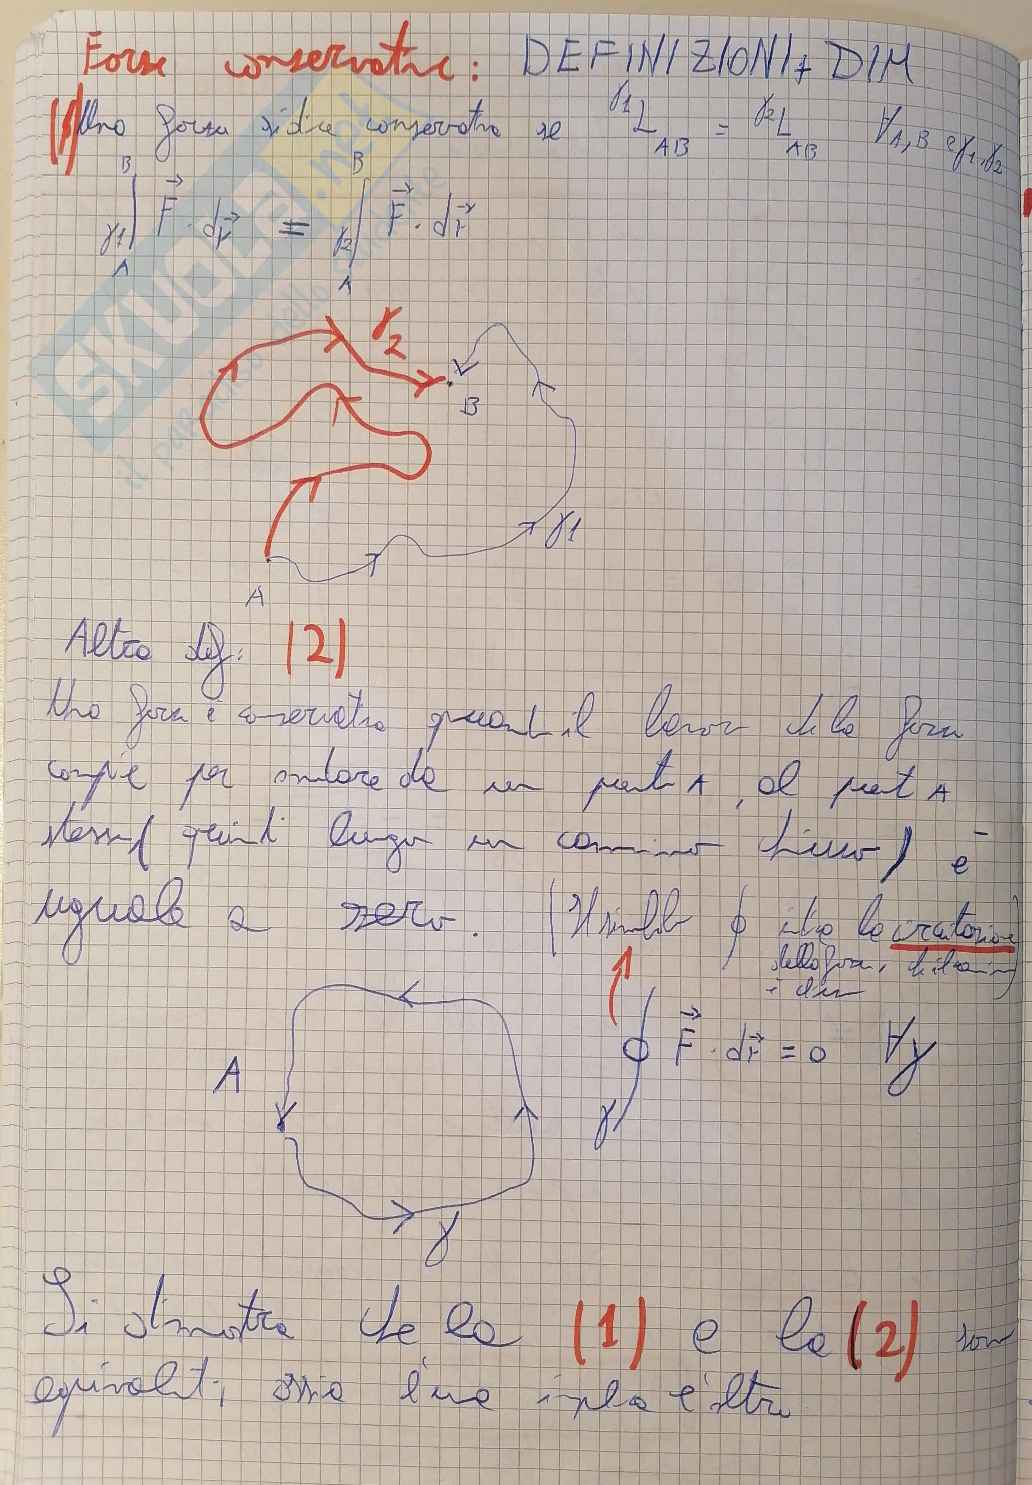 Forze conservative: DEFINIZIONI + DIM
(1) Una forza si dice conservativa se γ1 L AB = γ2 L AB ∀ A, B e γ1, γ2
γ1 ∫ A B F · dr = γ2 ∫ A B F · dr
γ2
B
γ1
A
Altra def: (2)
Una forza è conservativa quando il lavoro che la forza
compie per andare da un punto A, al punto A
stesso (quindi lungo un cammino chiuso) è
uguale a zero. (Il simbolo ∮ indica la circuitazione
della forza, il cammino
è chiuso
A
∮ F · dr = 0 ∀γ
γ
γ
Si dimostra che la (1) e la (2) sono
equivalenti, ossia l'una implica l'altra
SKUOLA.net
il paradiso dello studente